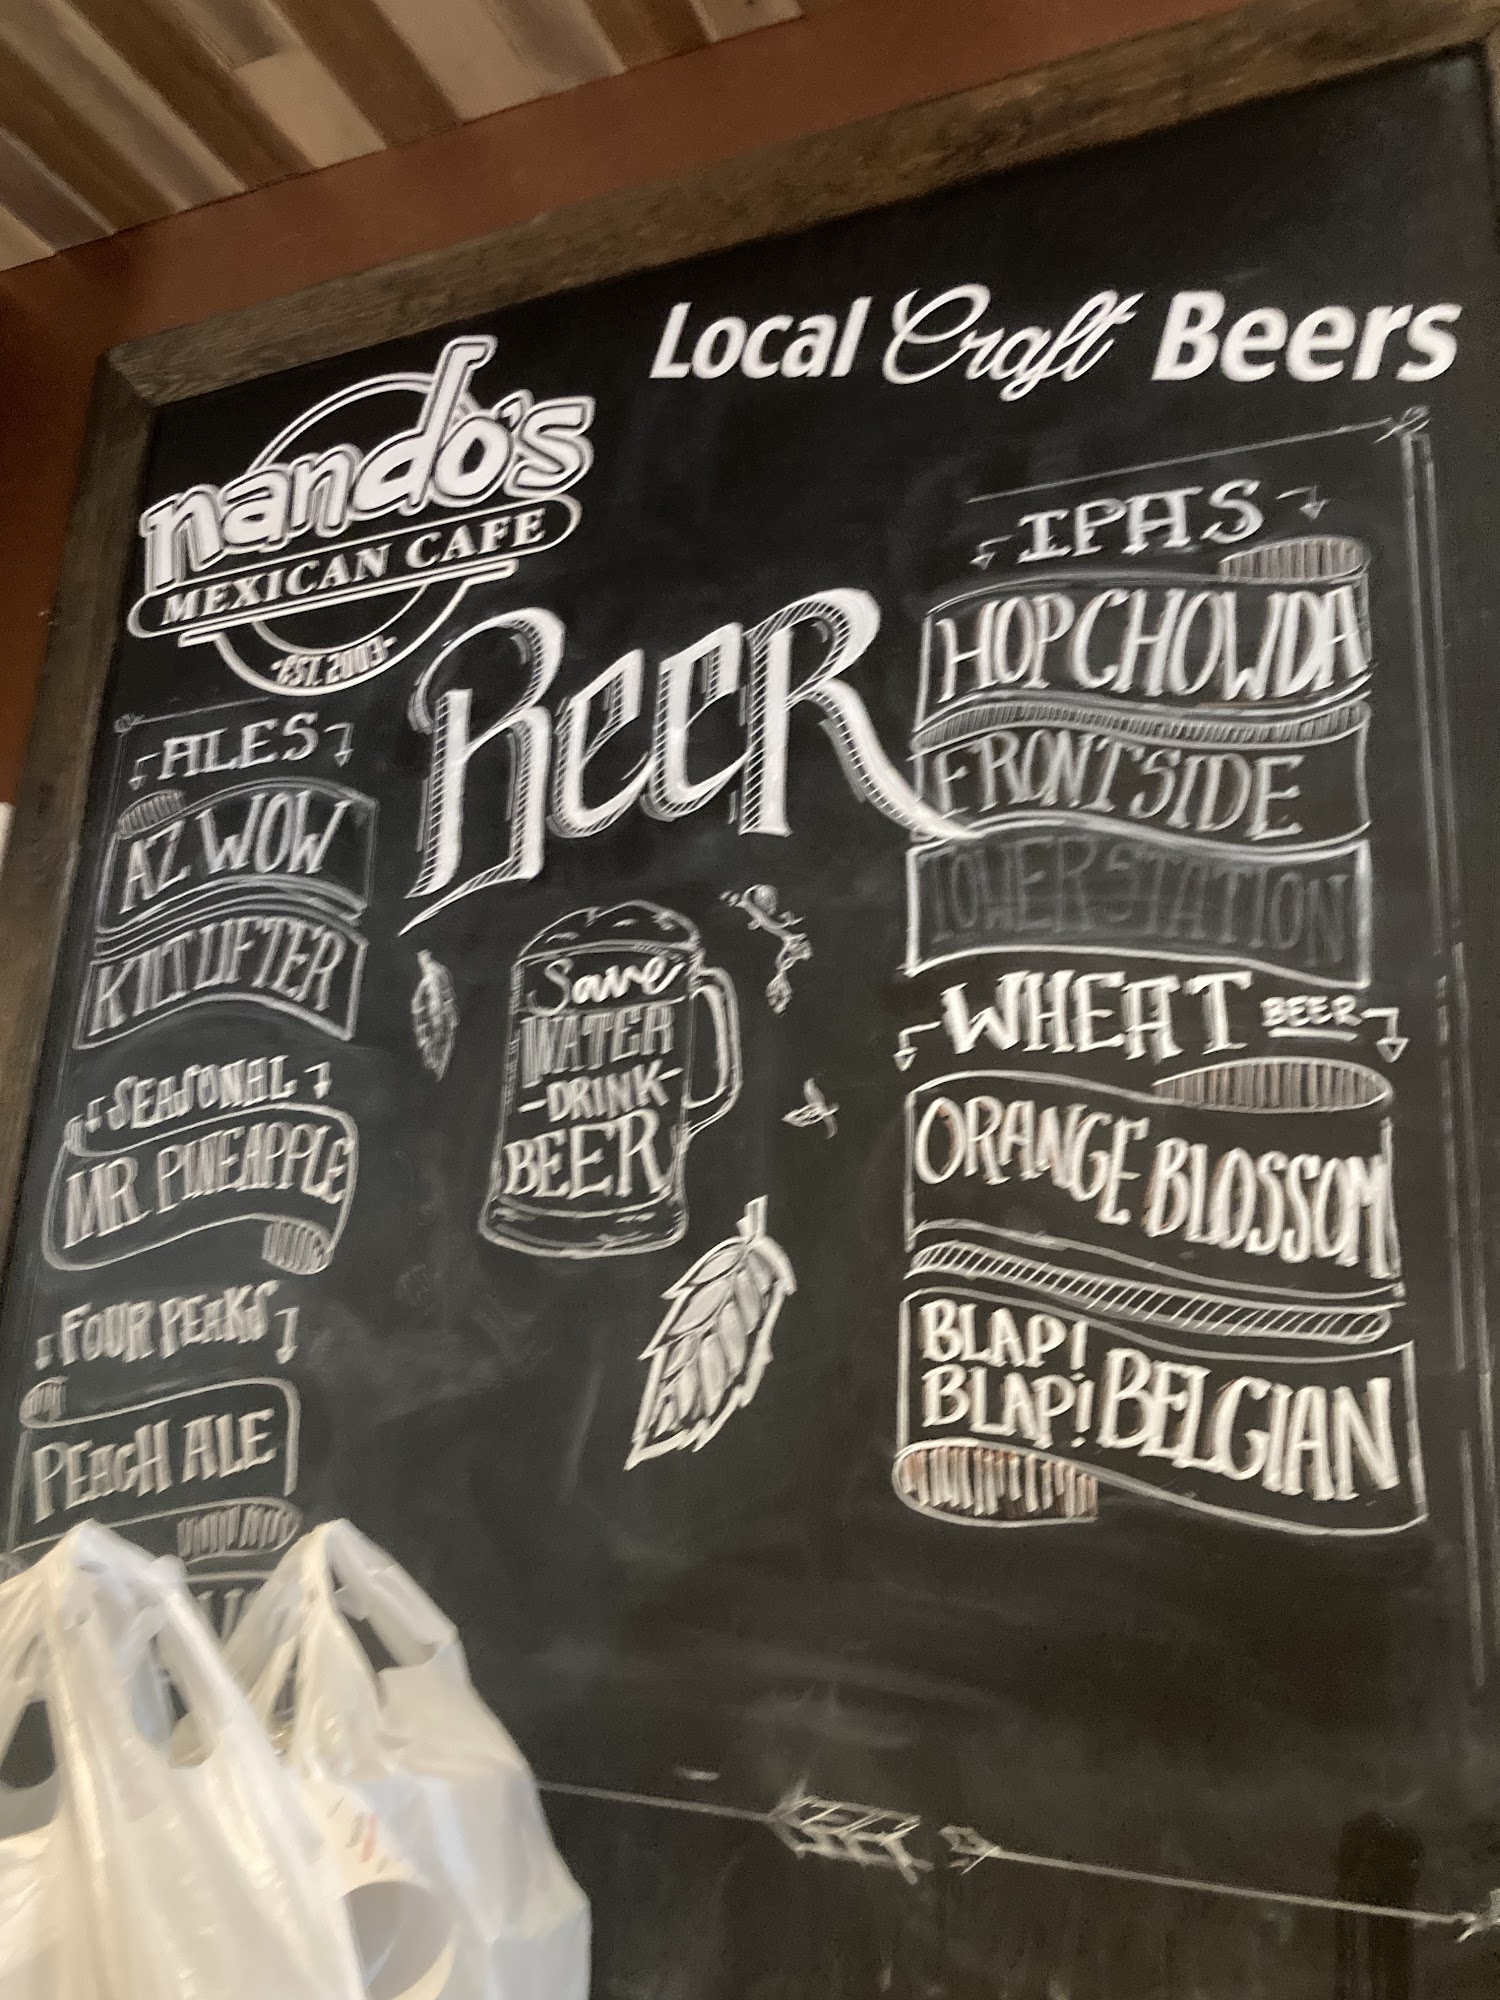 Local Craft Beers
nando's
MEXICAN CAFE
EST. 2003
BEER
ALES
AZ WOW
KILT LIFTER
SEASONAL
MR. PINEAPPLE
FOUR PEAKS
PEACH ALE
Save
WATER
-DRINK-
BEER
IPAS
HOP CHOWDA
FRONTSIDE
TOWER STATION
WHEAT BEER
ORANGE BLOSSOM
BLAP!
BLAP! BELGIAN